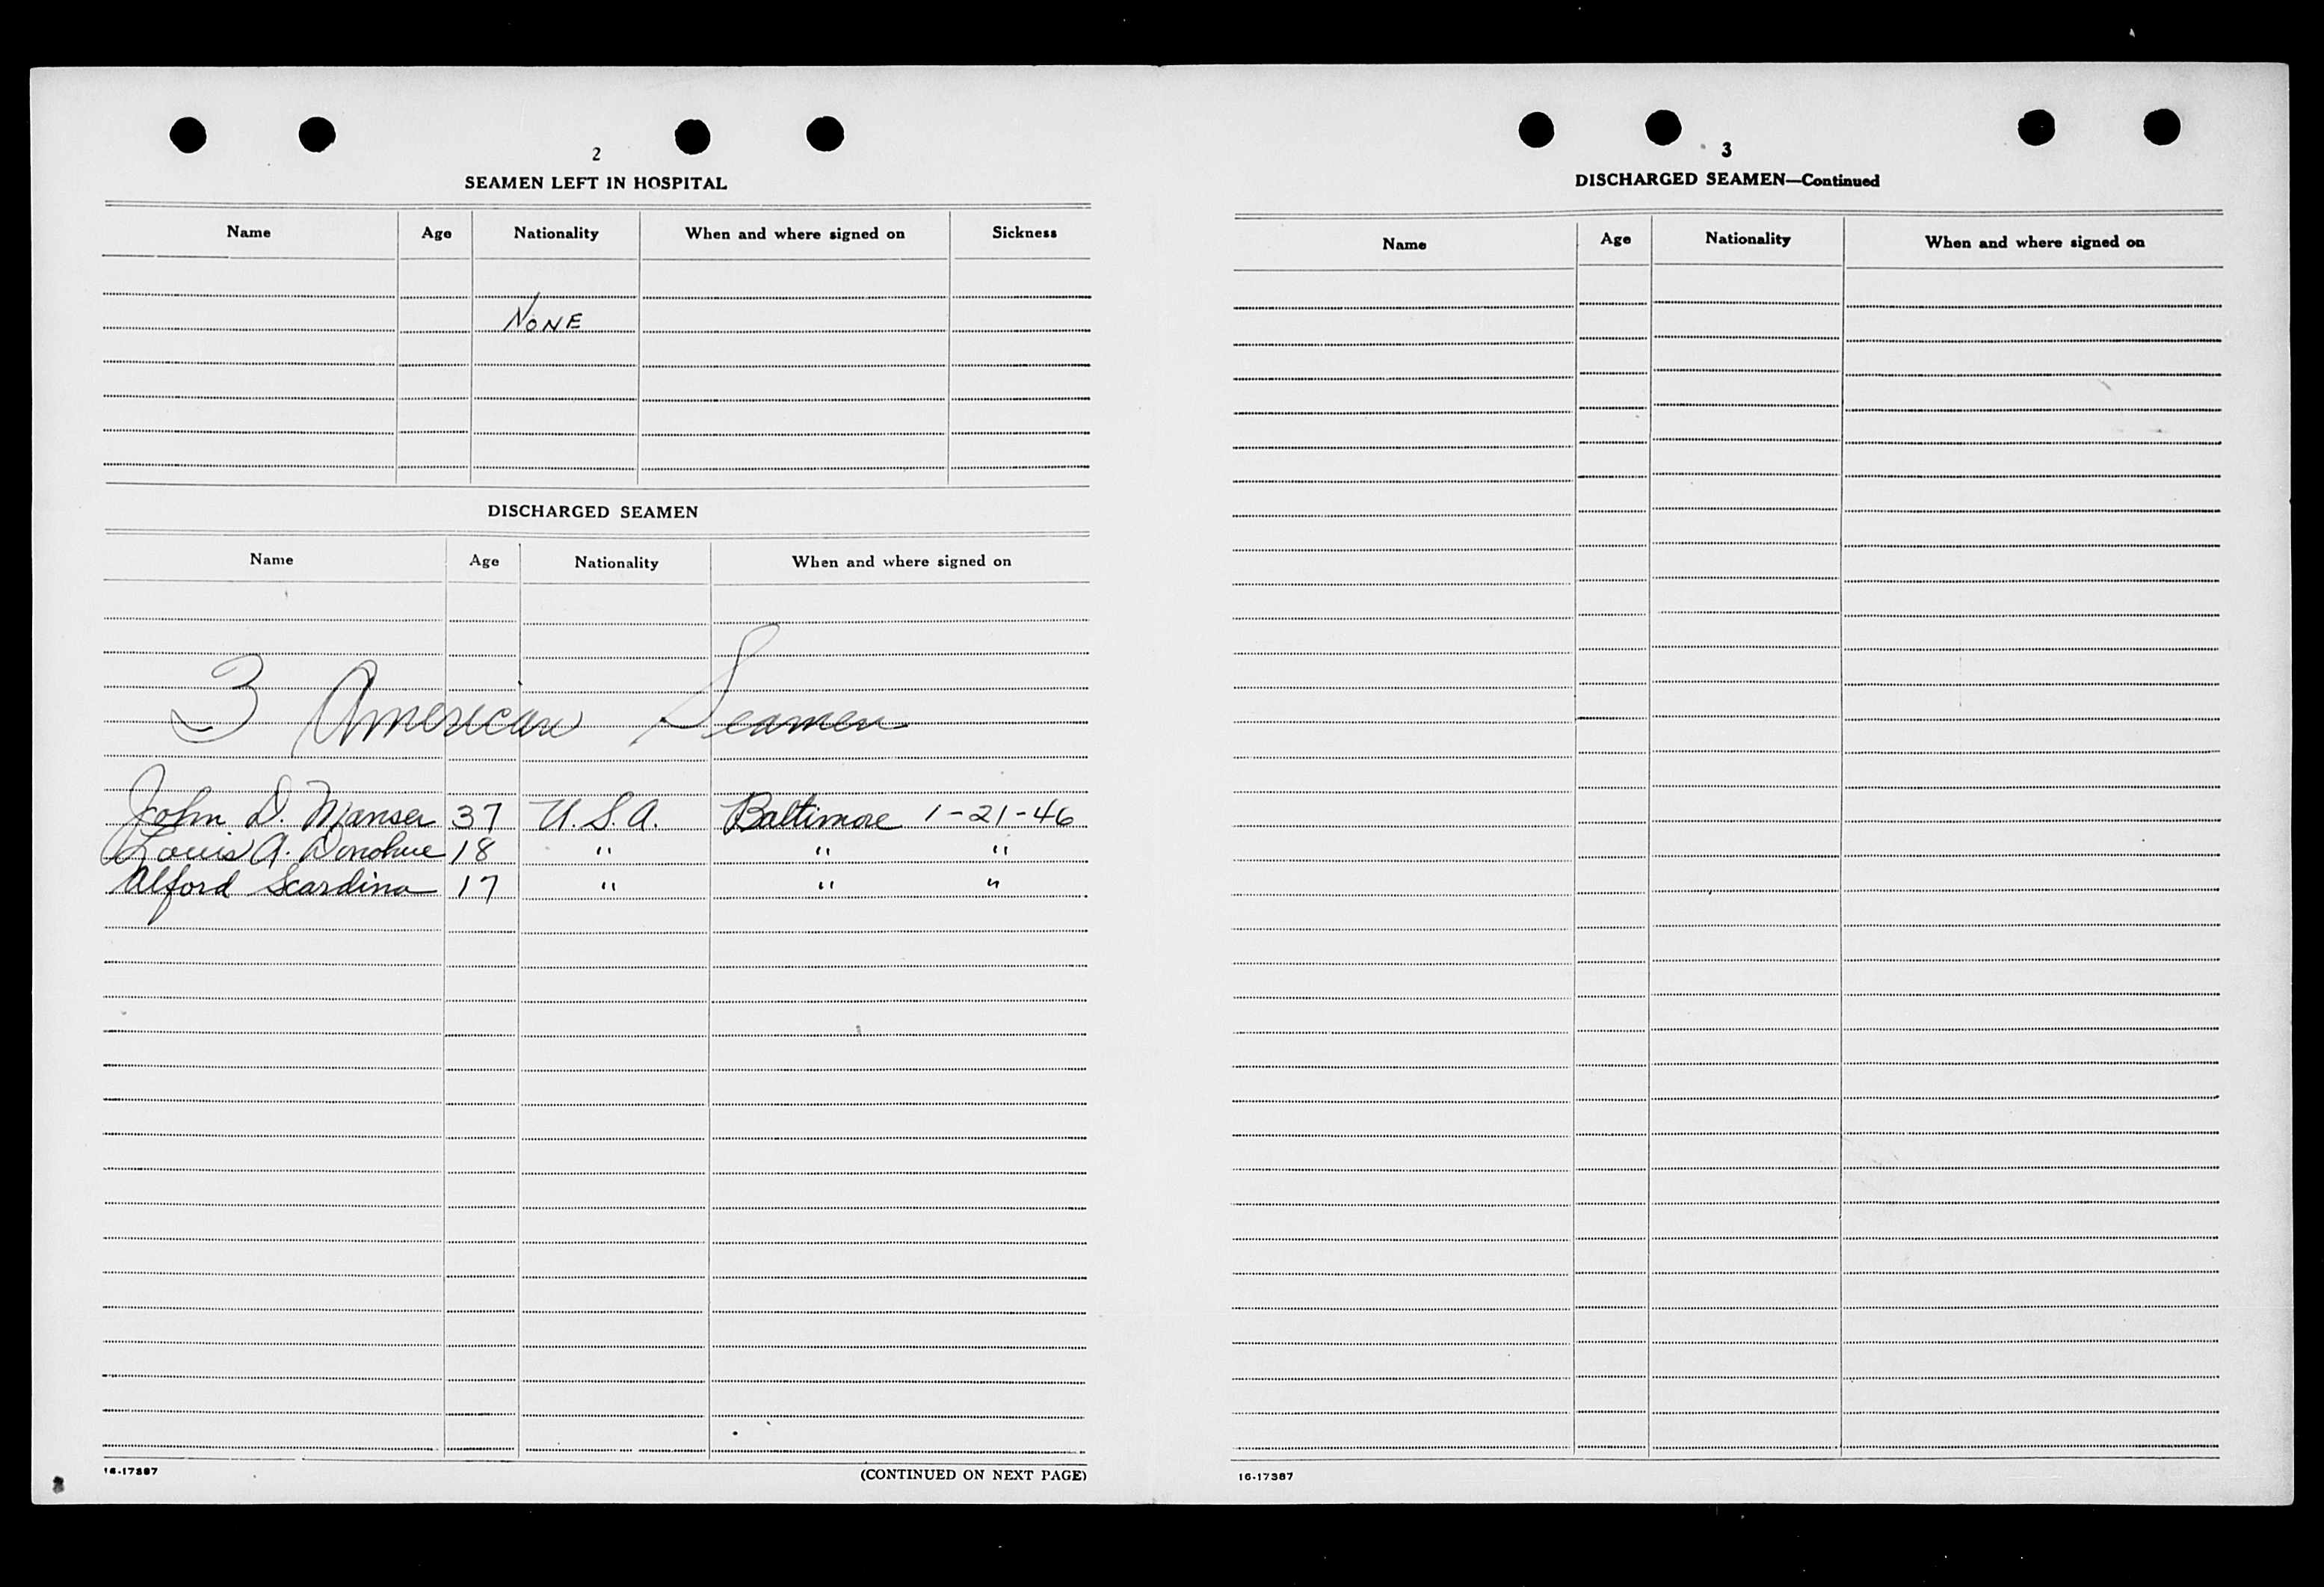 2
SEAMEN LEFT IN HOSPITAL
Name Age Nationality When and where signed on Sickness
NONE
DISCHARGED SEAMEN
Name Age Nationality When and where signed on
3 American Seamen
John D. Manser 37 U.S.A. Baltimore 1-21-46
Louis A. Donohue 18 " " "
Alford Scardina 17 " " "
16-17387 (CONTINUED ON NEXT PAGE)
3
DISCHARGED SEAMEN—Continued
Name Age Nationality When and where signed on
16-17387